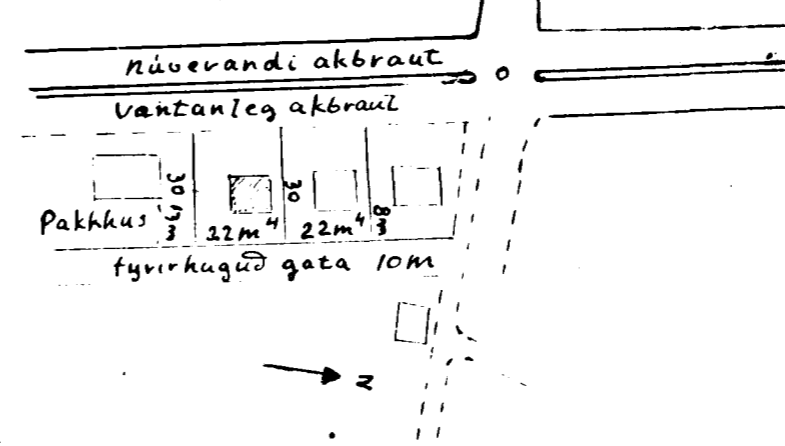 núverandi akbraut
væntanleg akbraut
30
30
Pakhhus
13 m
22m
22m
8 m
fyrirhuguð gata 10m
N